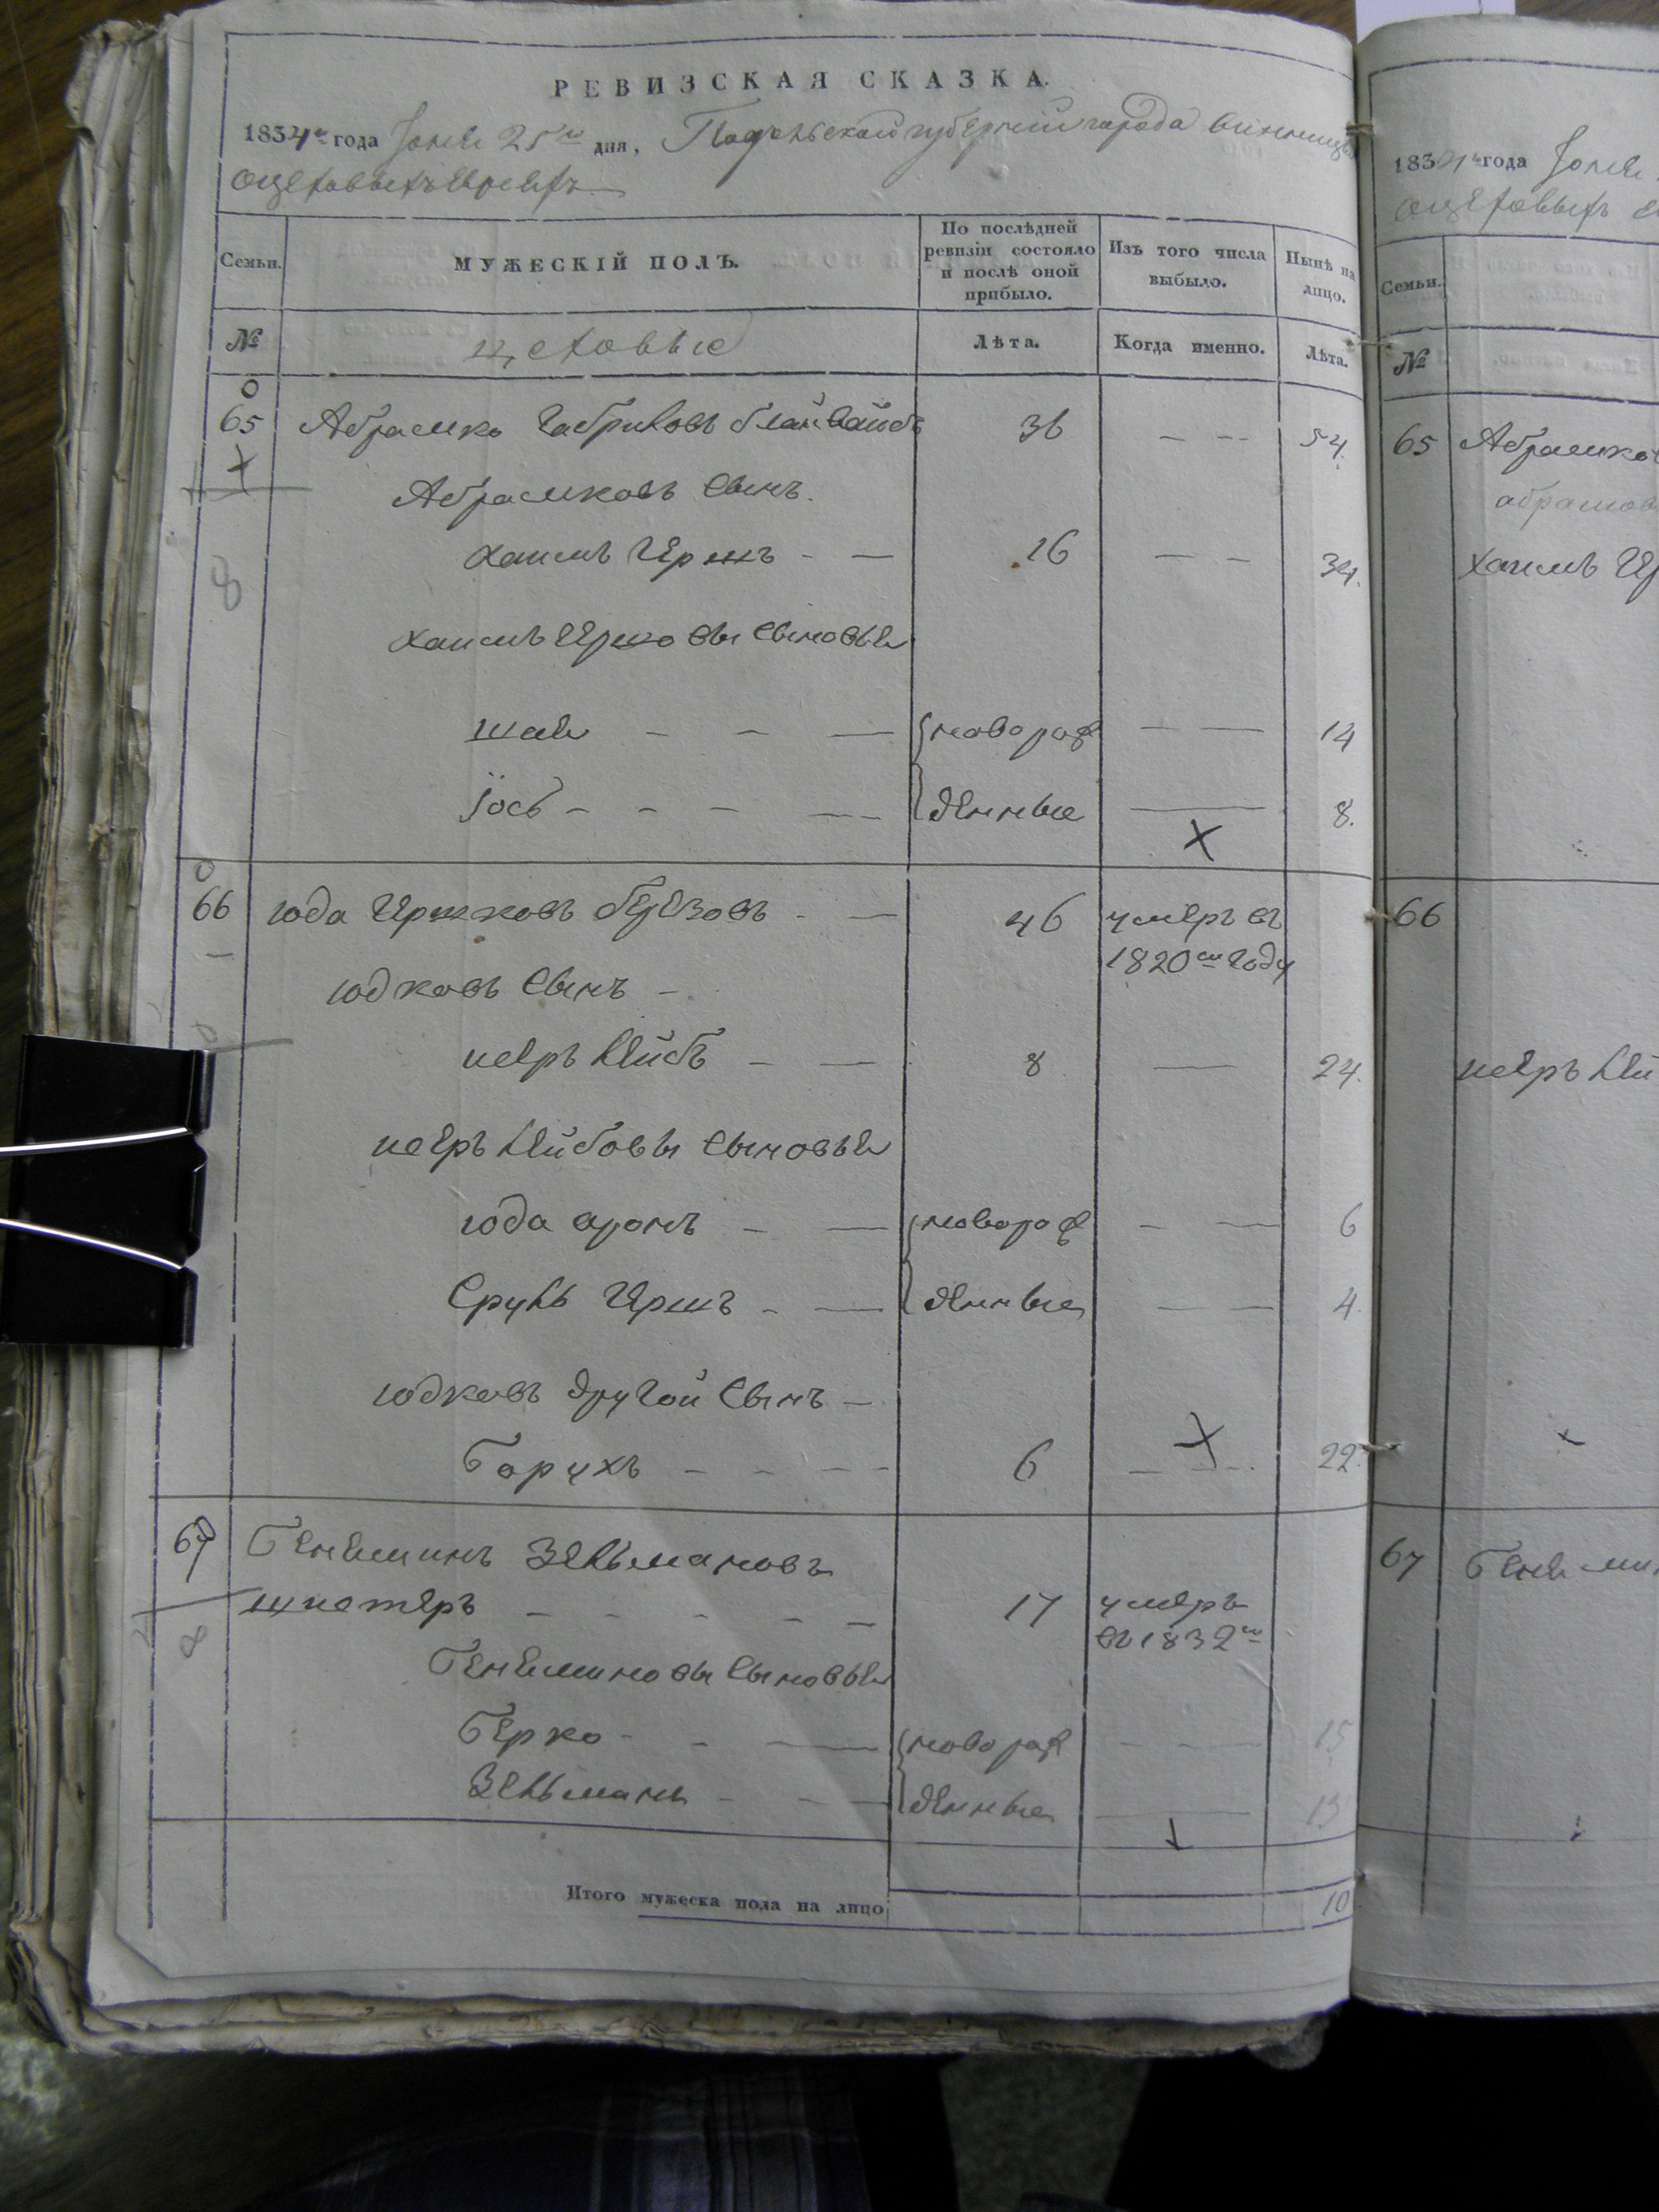 РЕВИЗСКАЯ СКАЗКА.
1834го года Іюня 25го дня, Подольской губерніи города Винницы
о цеховыхъ евреяхъ
Семьи. МУЖЕСКІЙ ПОЛЪ. По послѣдней ревизіи состояло и послѣ оной прибыло. Изъ того числа выбыло. Нынѣ на лицо.
№ цеховые Лѣта. Когда именно. Лѣта.
65 Абрамко Габриловъ 36 — — 54.
Абрамковъ сынъ.
Хаимъ Гершъ — — 16 — — 34.
Хаимъ Гершковы сыновья
Шая — — — новорож — — 14
Іось — — — — денные — 8.
66 Юда Гершковъ — — 46 умеръ въ
1820м году
Юдковъ сынъ —
Меръ Лейбъ — — 8 — 24.
Меръ Лейбовы сыновья
Юда Аронъ — — новорож — — 6
Сруль Гершъ — — денные — — 4.
Юдковъ другой сынъ —
Борухъ — — — — 6 — — 22.
67 Беняминъ Зельмановъ
— — — — — 17 умеръ
въ 1832м
Беняминовы сыновья
Берко — — — новорож — — 15
Зельманъ — — — денные — 13
Итого мужеска пола на лицо 10
1834го года Іюня
о цеховыхъ
Семьи.
№
65 Абрамков
абрамов
Хаимъ Ге
66
Меръ Лей
67 Беня ми